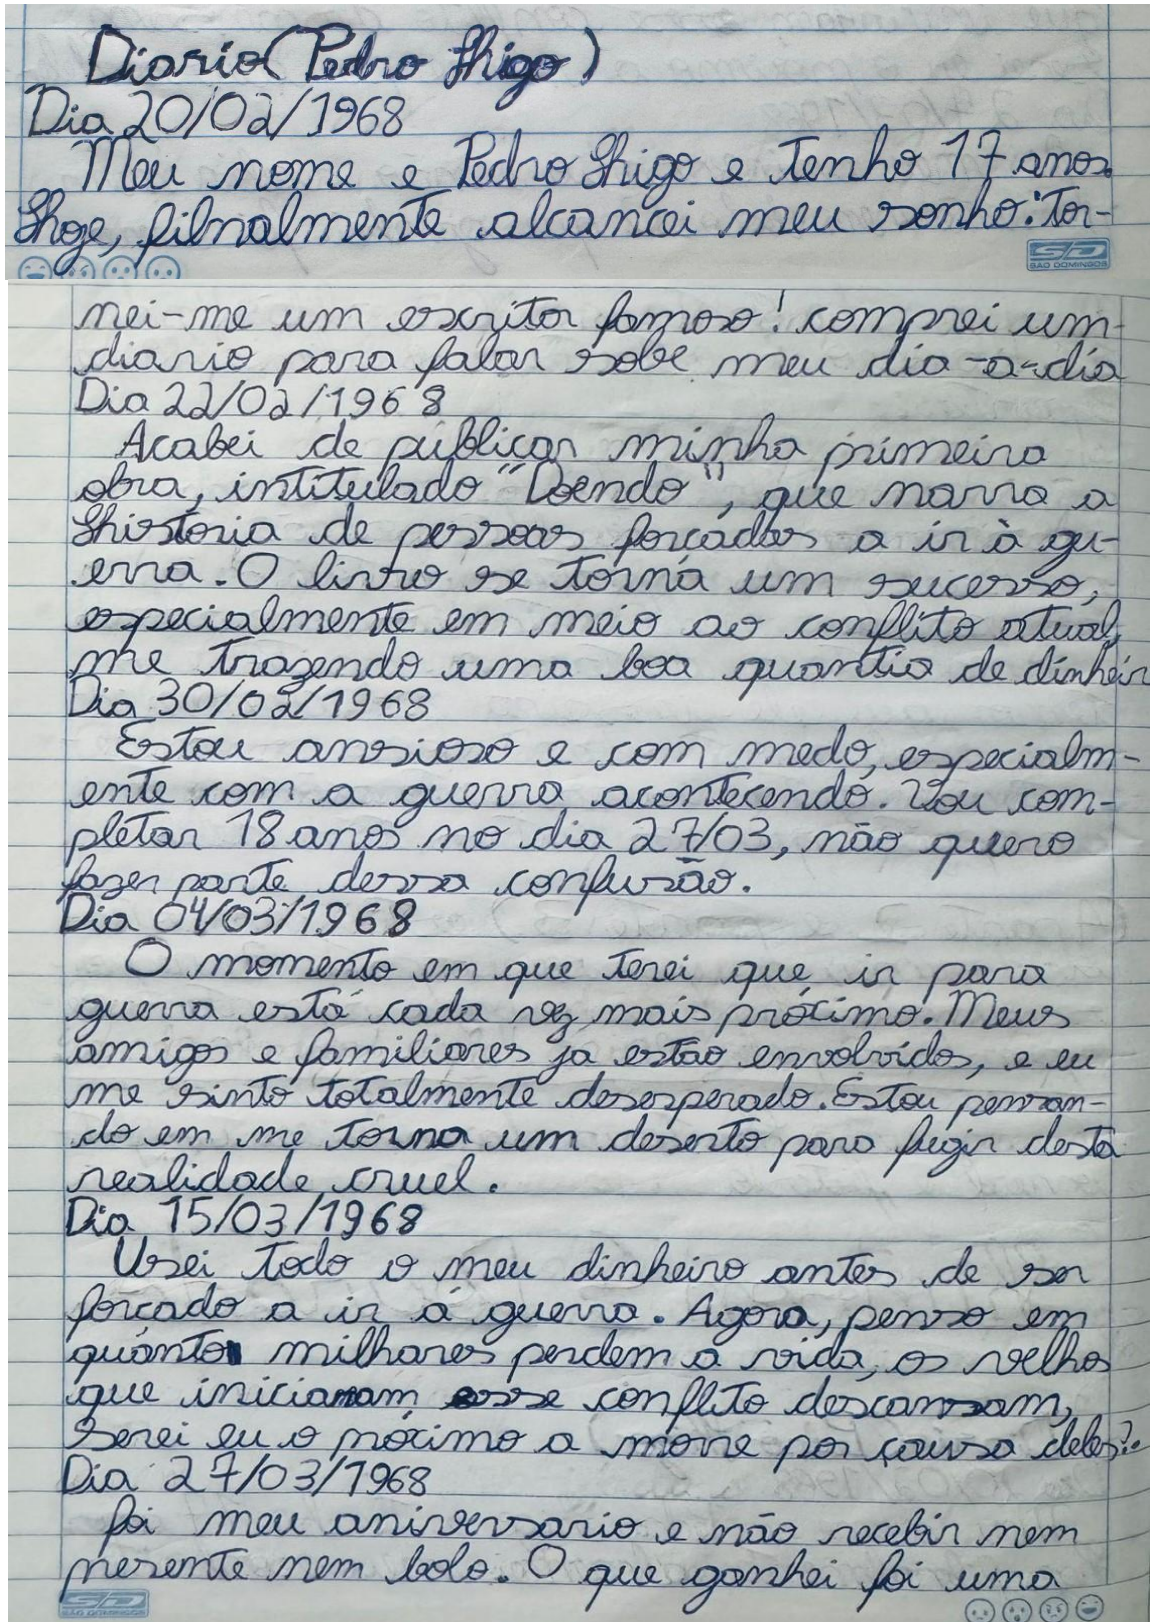 Diario (Pedro Shigo)
Dia 20/02/1968
Meu nome e Pedro Shigo e tenho 17 anos.
Hoge, filnalmente alcancei meu sonho: tor-
SD
SÃO DOMINGOS
nei-me um escritor famoso! comprei um
diario para falar sobe meu dia-a-dia
Dia 22/02/1968
Acabei de publicar minha primeira
obra, intitulado "Doendo", que narra a
história de pessoas forçadas a ir à gu-
erra. O livro se torna um sucesso,
especialmente em meio ao conflito atual,
me trazendo uma boa quantia de dinheir
Dia 30/02/1968
Estou ansioso e com medo, especialm-
ente com a guerra acontecendo. Vou com-
pletar 18 anos no dia 27/03, não quero
fazer parte dessa confusão.
Dia 04/03/1968
O momento em que terei que ir para
guerra está cada vez mais próximo. Meus
amigos e familiares ja estão envolvidos, e eu
me sinto totalmente desesperado. Estou pensan-
do em me torna um deserto para fugir desta
realidade cruel.
Dia 15/03/1968
Usei todo o meu dinheiro antes de ser
forçado a ir á guerra. Agora, penso em
quanto milhares perdem a vida, os velhos
que iniciaram esse conflito descansam,
serei eu o próximo a morre por causa deles?.
Dia 27/03/1968
foi meu aniversario e não recebir nem
presente nem bolo. O que ganhei foi uma
SD
SÃO DOMINGOS